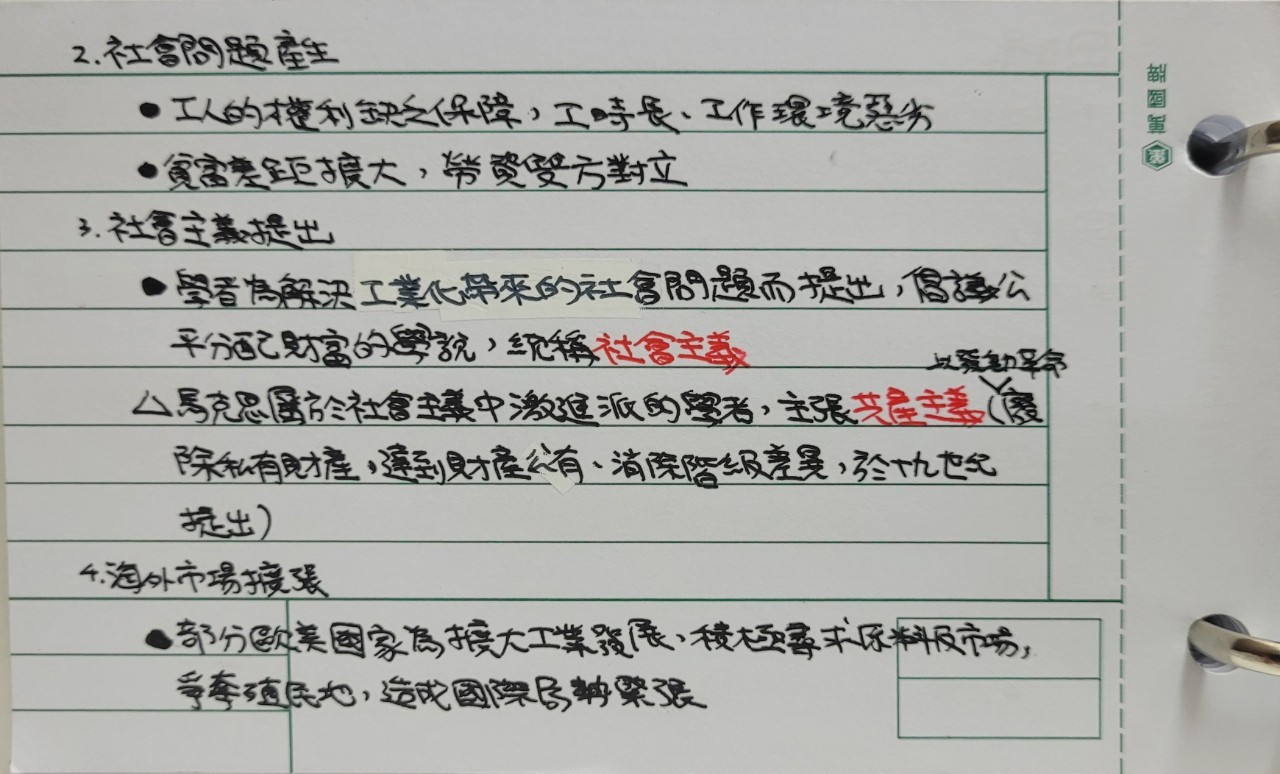 2.社會問題產生
●工人的權利缺乏保障，工時長、工作環境惡劣
●貧富差距擴大，勞資雙方對立
3.社會主義提出
●學者為解決工業化帶來的社會問題而提出，倡議公
平分配財富的學說，統稱社會主義
以發動革命
△馬克思屬於社會主義中激進派的學者，主張共產主義(廢
除私有財產，達到財產公有、消除階級差異，於十九世紀
提出)
4.海外市場擴張
●部分歐美國家為擴大工業發展、積極尋求原料及市場，
爭奪殖民地，造成國際局勢緊張
萬國牌